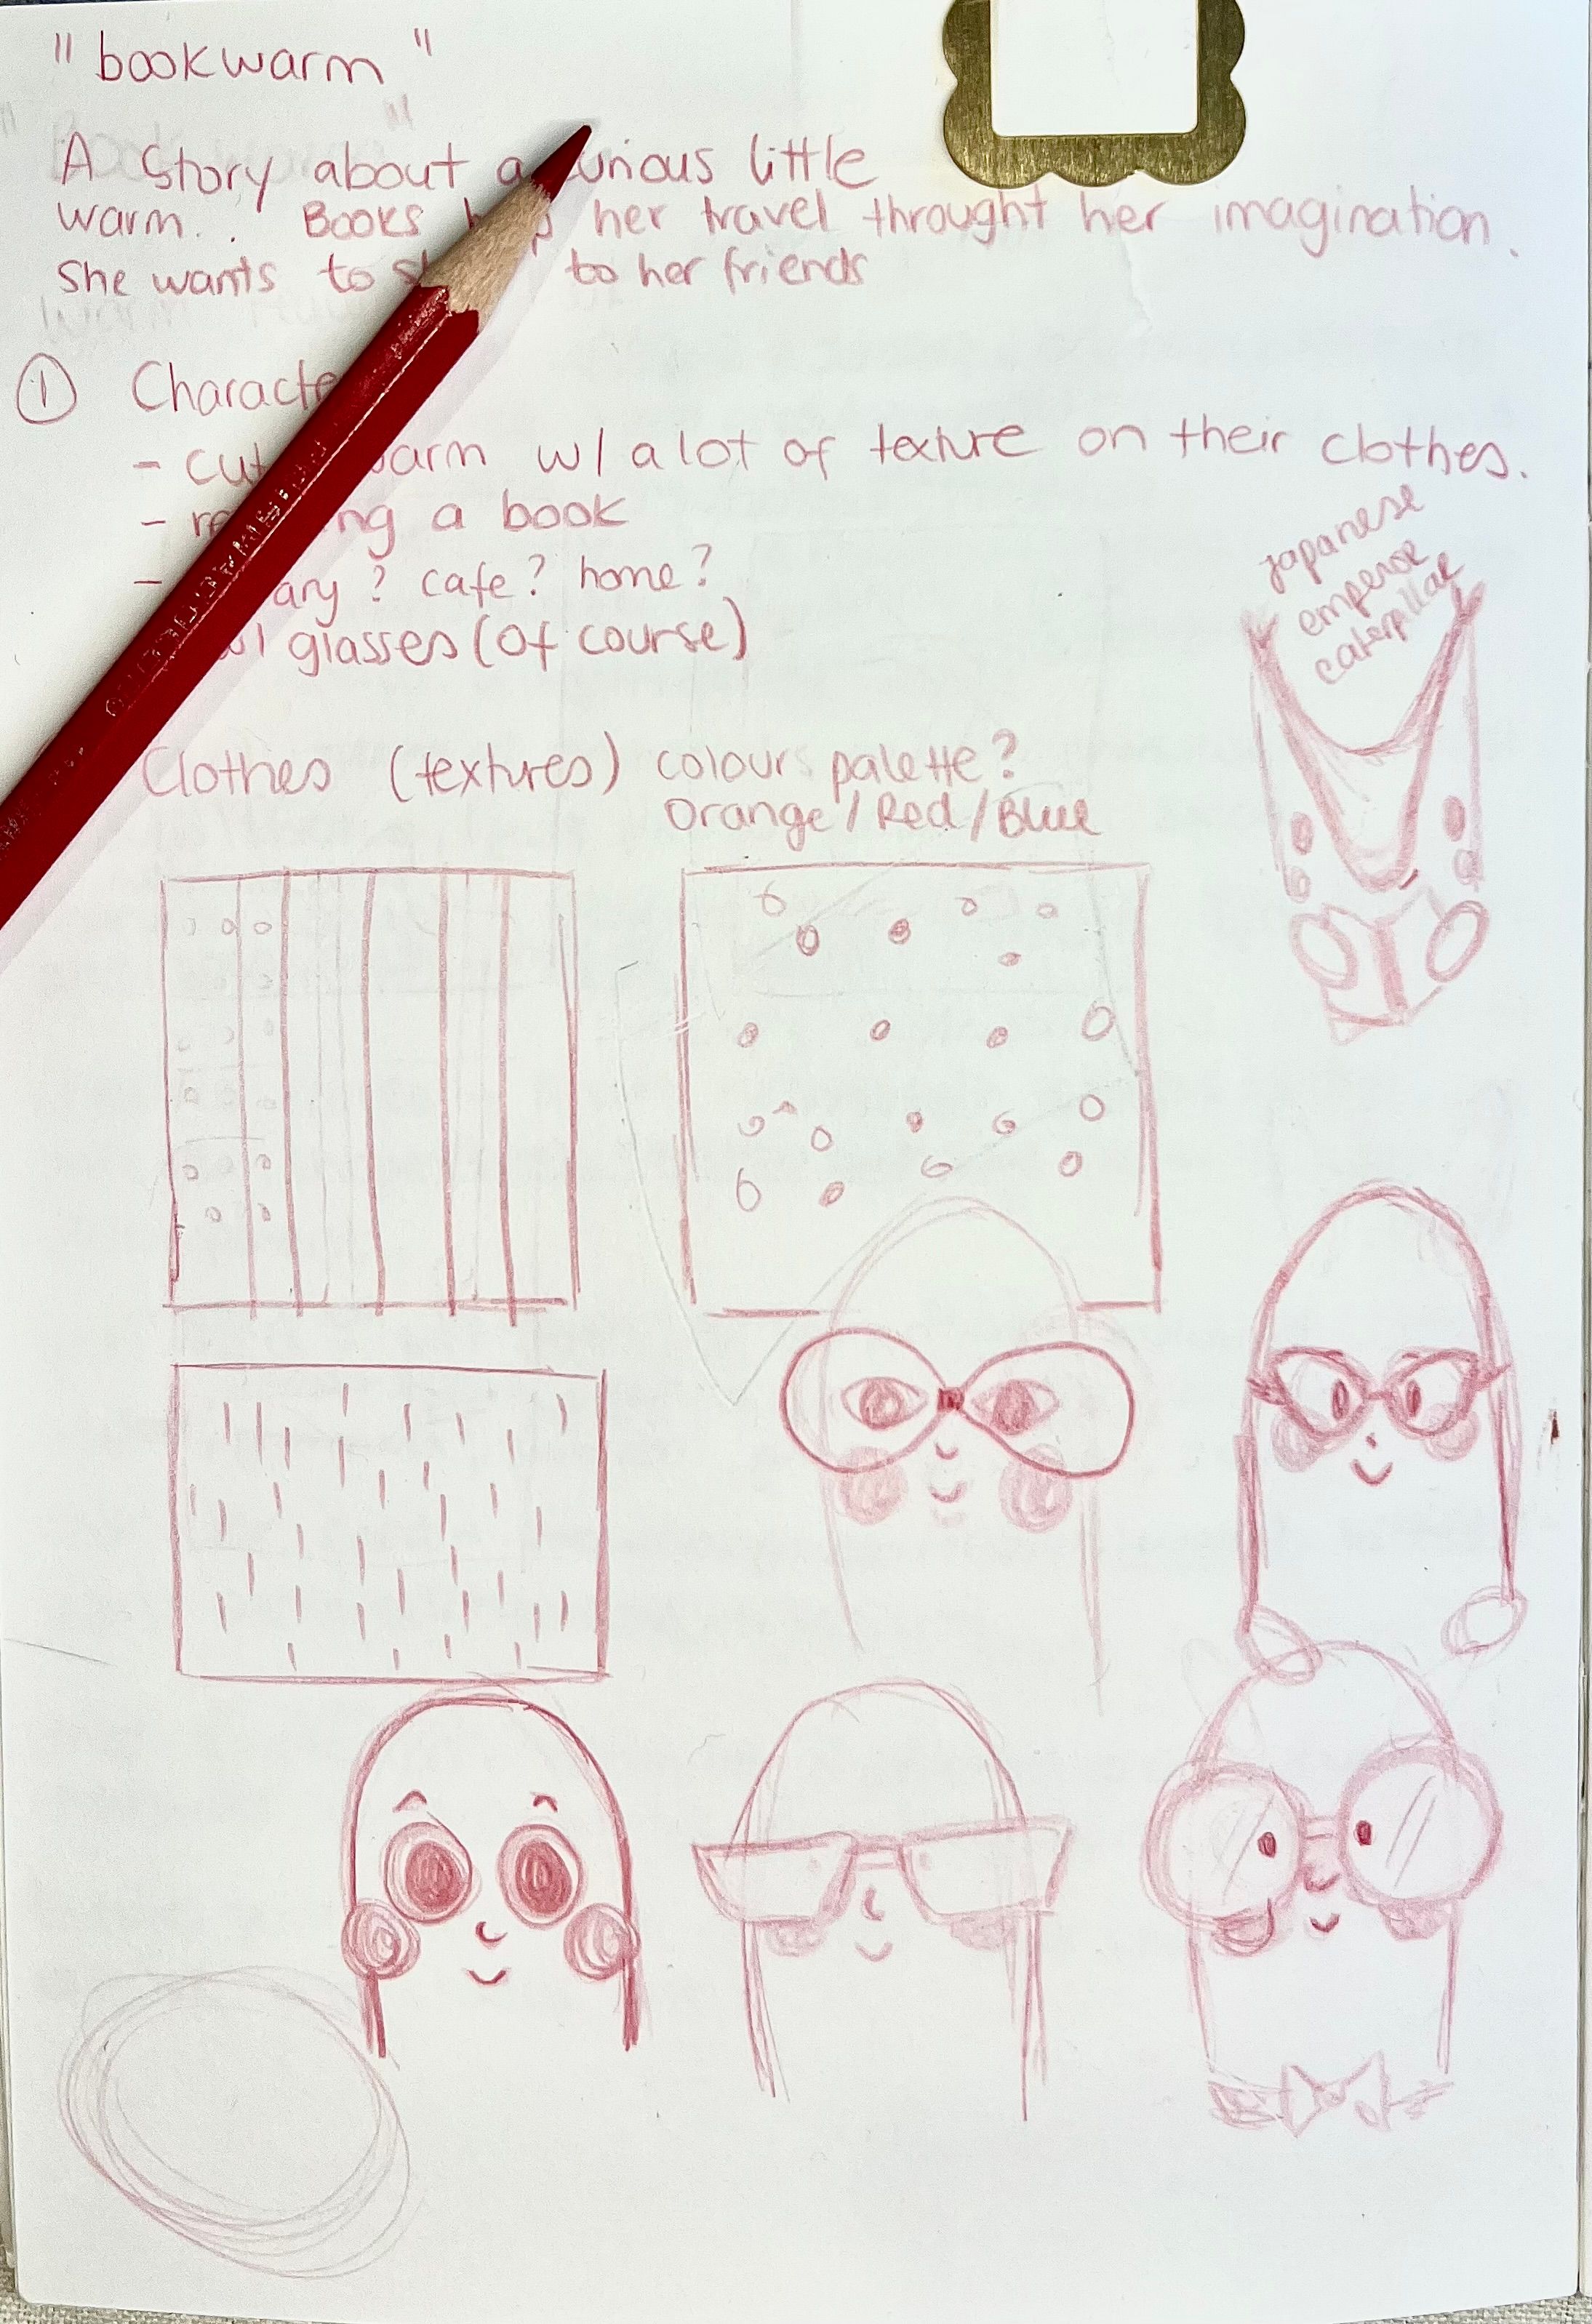 "bookwarm"
A story about a curious little
warm.. Books help her travel throught her imagination.
She wants to to her friends
① Characte
- cut warm w/ a lot of texture on their clothes.
- reading a book
- ary? cafe? home?
w/ glasses (of course)
japanese
emperor
caterpillar
Clothes (textures) colours palette?
Orange/Red/Blue